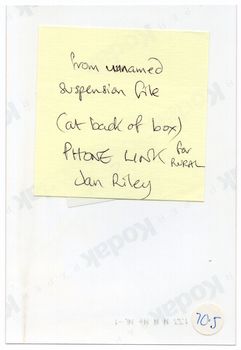 from unnamed
suspension file
(at back of box)
PHONE LINK for RURAL
Jan Riley
Kodak
70-5